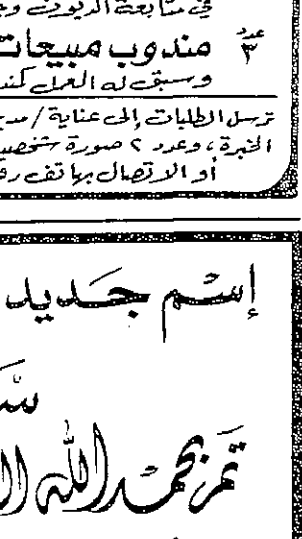 في متابعة الديون
عدد ٣ مندوب مبيعات
وسبق له العمل
ترسل الطلبات إلى عناية /
الخبرة، وعدد ٢ صورة
أو الاتصال بهاتف
إسم جديد
تم بحمد الله